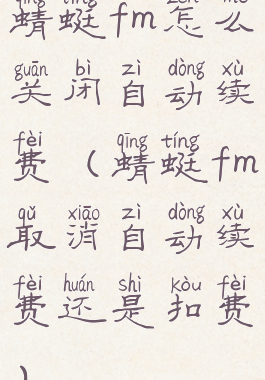 qīng tíng zěn me
蜻蜓fm怎么
guān bì zì dòng xù
关闭自动续
fèi qīng tíng
费（蜻蜓fm
qǔ xiāo zì dòng xù
取消自动续
fèi huán shì kòu fèi
费还是扣费
）